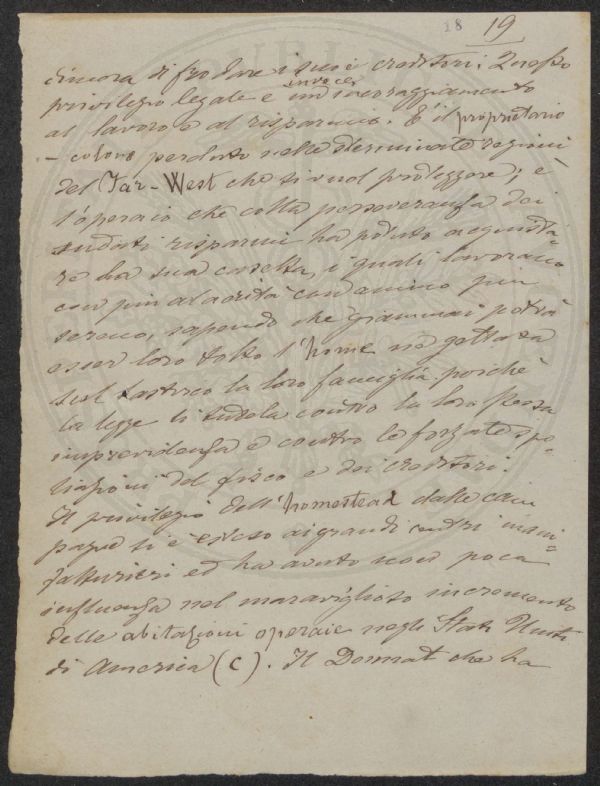 18 19
dimora di frodare i suoi creditori. Questo
invece
privilegio legale è un incoraggiamento
al lavoro e al risparmio. È il proprietario
- colono perduto nelle sterminate regioni
del Far-West che si vuol proteggere; è
l'operaio che colla perseveranza dei
sudati risparmi ha potuto acquista-
re la sua casetta, i quali lavorano
con più alacrità con animo più
sereno, sapendo che giammai potrà
esser loro tolto l'home nè gettata
sul lastrico la loro famiglia perchè
la legge li tutela contro la loro stessa
imprevidenza e contro le forzate spo-
liazioni del fisco e dei creditori.
Il privilegio dell'homestead dalle cam
pagne si è esteso ai grandi centri mani-
fatturieri ed ha avuto non poca
influenza nel maraviglioso incremento
delle abitazioni operaie negli Stati Uniti
di America (c). Il Donnat che ha